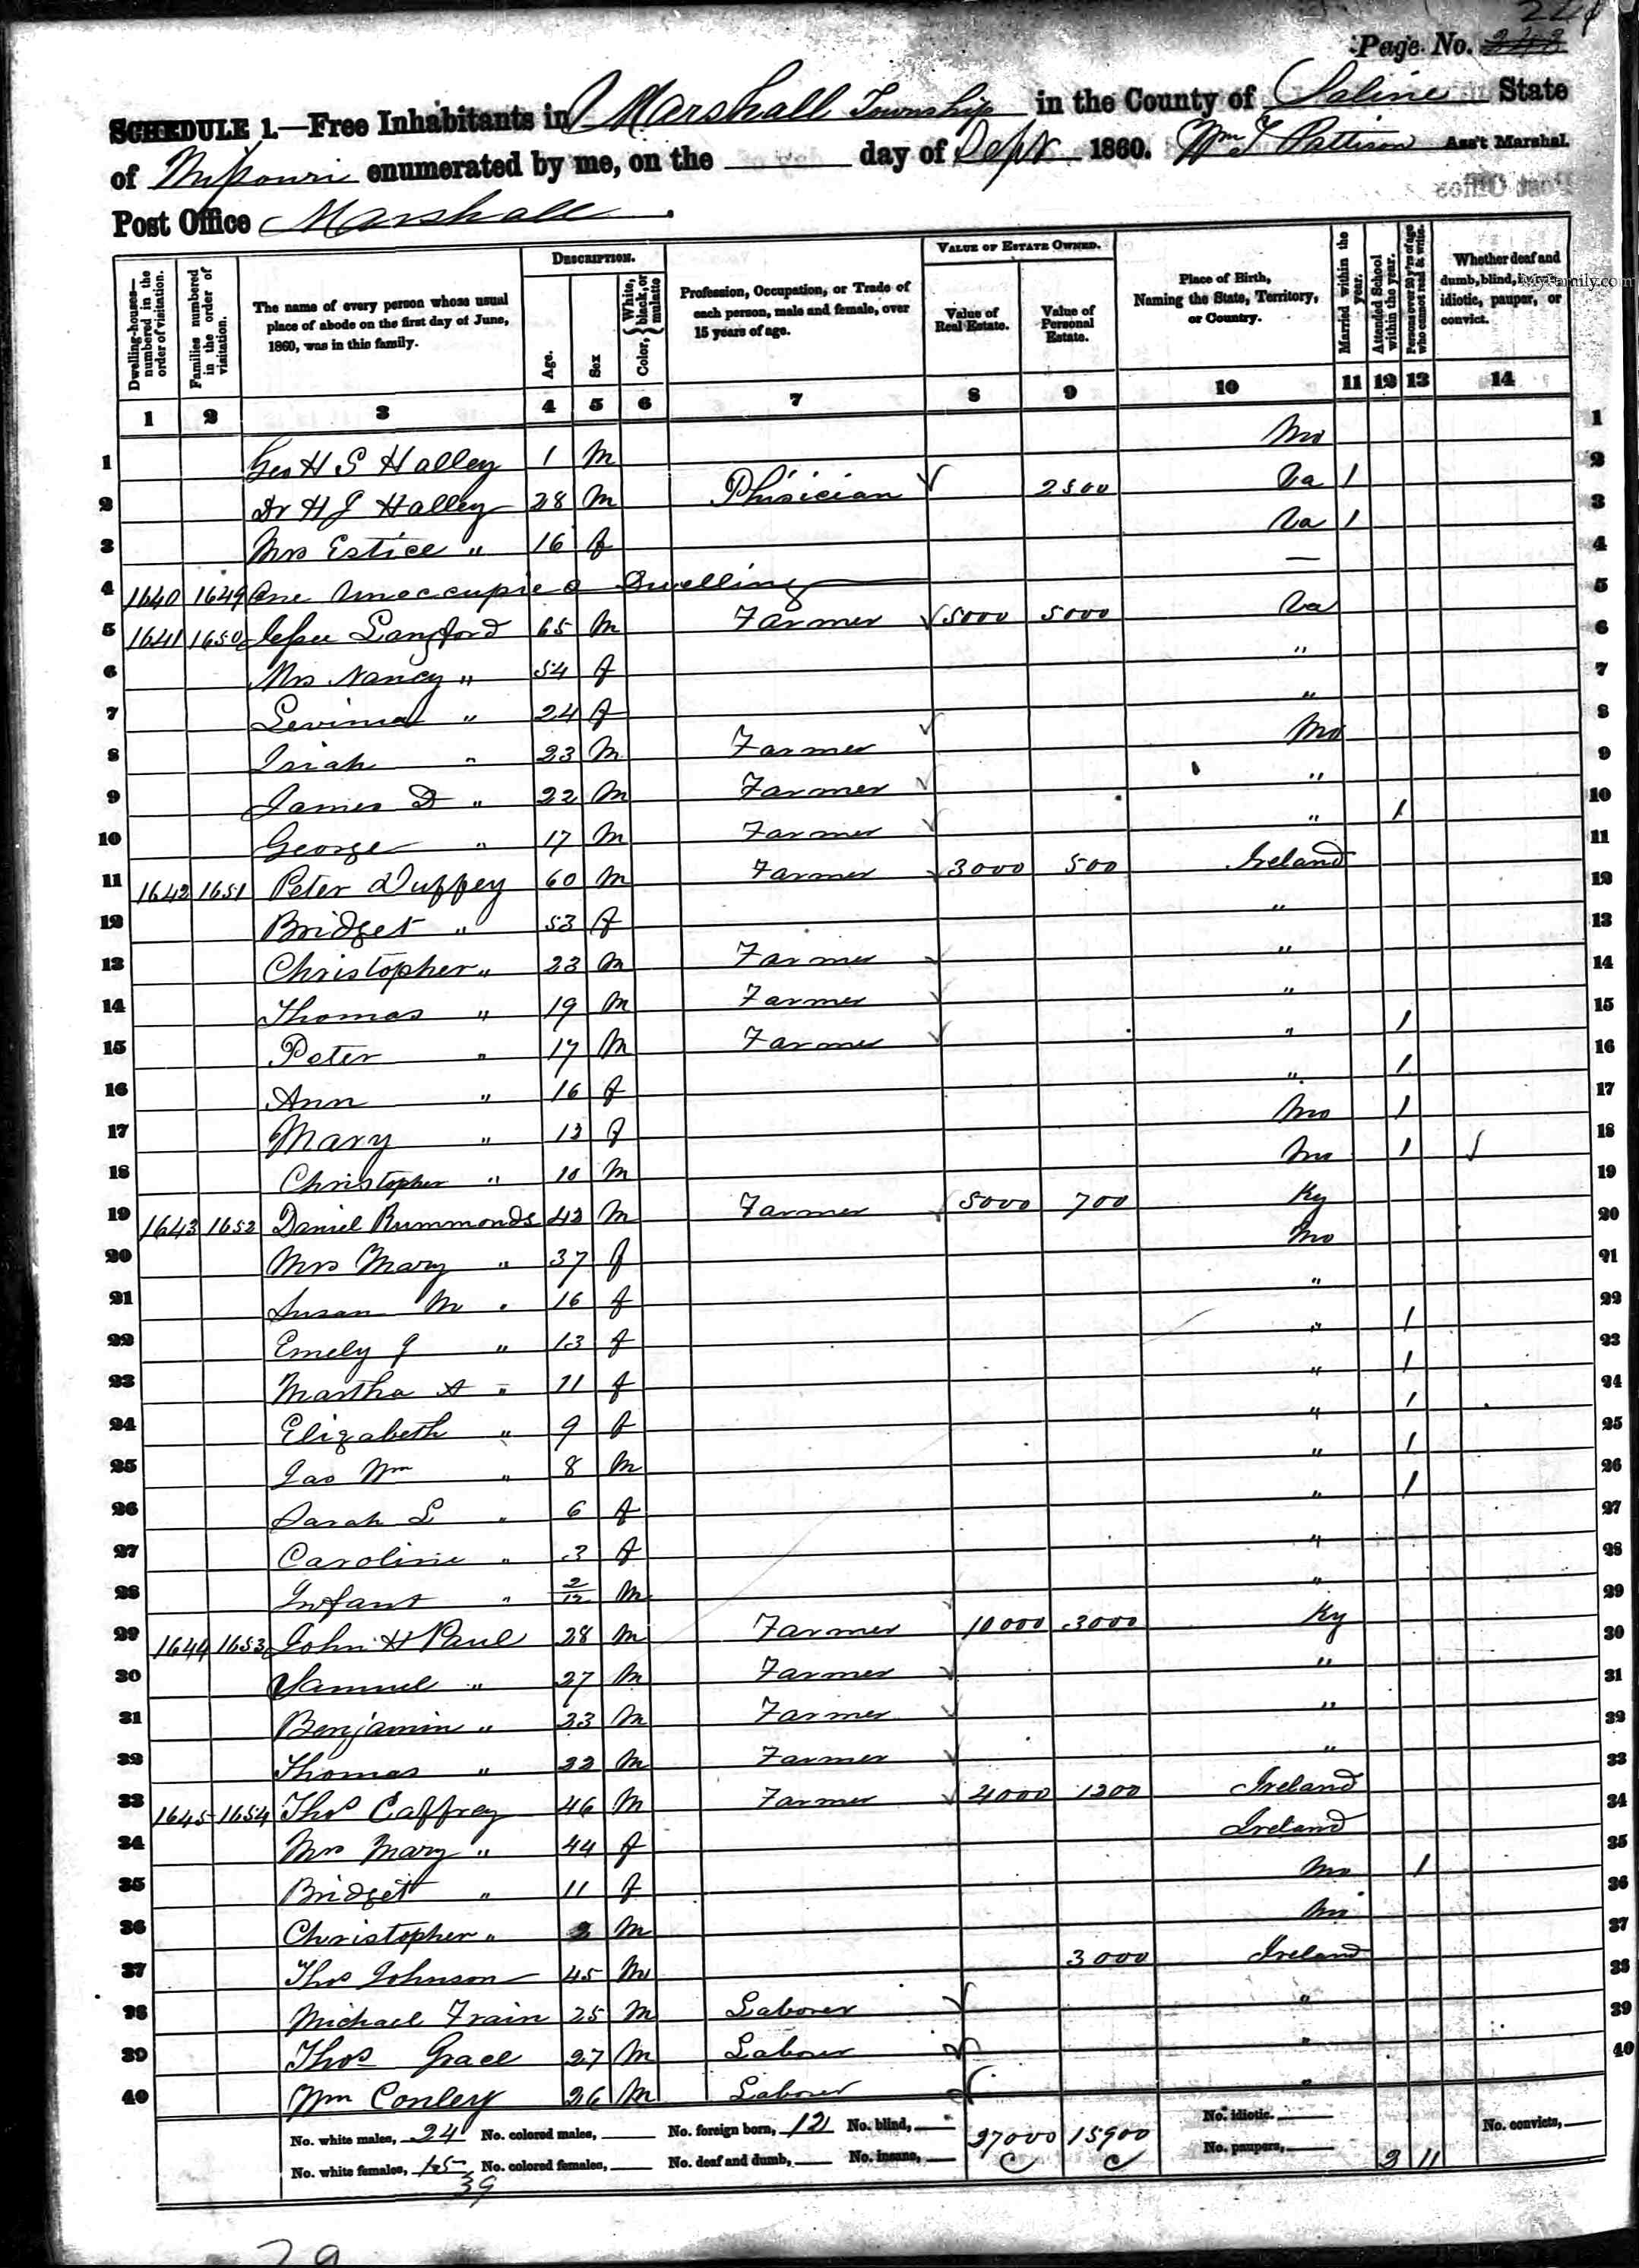 224
Page No. 223
SCHEDULE 1.—Free Inhabitants in Marshall Township in the County of Saline State
of Missouri enumerated by me, on the day of Sept 1860. Wm T Pattison Ass't Marshal.
Post Office Marshall.
Dwelling-houses—numbered in the order of visitation. Families numbered in the order of visitation. The name of every person whose usual place of abode on the first day of June, 1860, was in this family. DESCRIPTION. Age. Sex Color, { White, black, or mulatto Profession, Occupation, or Trade of each person, male and female, over 15 years of age. VALUE OF ESTATE OWNED. Value of Real Estate. Value of Personal Estate. Place of Birth, Naming the State, Territory, or Country. Married within the year. Attended School within the year. Persons over 20 y'rs of age who cannot read & write. Whether deaf and dumb, blind, idiotic, pauper, or convict.
MyFamily.com
1 2 3 4 5 6 7 8 9 10 11 12 13 14
1 Geo H S Halley 1 M Mo 1
2 Dr H J Halley 28 M Phisician 2500 Va 1 2
3 Mrs Estice " 16 f Va 1 3
4 1640 1649 One Unoccupied Dwelling — 4
5 1641 1650 Jesse Langford 65 M Farmer 5000 5000 Va 5
6 Mrs Nancy " 54 f " 6
7 Levina " 24 f " 7
8 Isiah " 23 M Farmer Mo 8
9 James D " 22 M Farmer " 9
10 George " 17 M Farmer " 1 10
11 1642 1651 Peter Duffey 60 M Farmer 3000 500 Ireland 11
12 Bridget " 53 f " 12
13 Christopher " 23 M Farmer " 13
14 Thomas " 19 M Farmer " 14
15 Peter " 17 M Farmer " 1 15
16 Ann " 16 f " 1 16
17 Mary " 13 f Mo 1 17
18 Christopher " 10 M Mo 1 18
19 1643 1652 Daniel Rummonds 43 M Farmer 5000 700 Ky 19
20 Mrs Mary " 37 f Mo 20
21 Susan M " 16 f " 21
22 Emely J " 13 f " 1 22
23 Martha A " 11 f " 1 23
24 Elizabeth " 9 f " 1 24
25 Jas Wm " 8 M " 1 25
26 Sarah L " 6 f " 1 26
27 Caroline " 3 f " 27
28 Infant " 2/12 M " 28
29 1644 1653 John H Paul 28 M Farmer 10000 3000 Ky 29
30 Samuel " 27 M Farmer " 30
31 Benjamin " 23 M Farmer " 31
32 Thomas " 22 M Farmer " 32
33 1645 1654 Thos Caffrey 46 M Farmer 4000 1200 Ireland 33
34 Mrs Mary " 44 f Ireland 34
35 Bridget " 11 f Mo 1 35
36 Christopher " 2 M Mo 36
37 Thos Johnson 45 M 3000 Ireland 37
38 Michael Train 25 M Laborer " 38
39 Thos Grace 27 M Laborer " 39
40 Wm Conley 26 M Laborer " 40
No. white males, 24 No. colored males, No. foreign born, 12 No. blind, 27000 15900 No. idiotic. No. convicts,
No. white females, 15 No. colored females, No. deaf and dumb, No. insane, No. paupers, 2 11
39
29